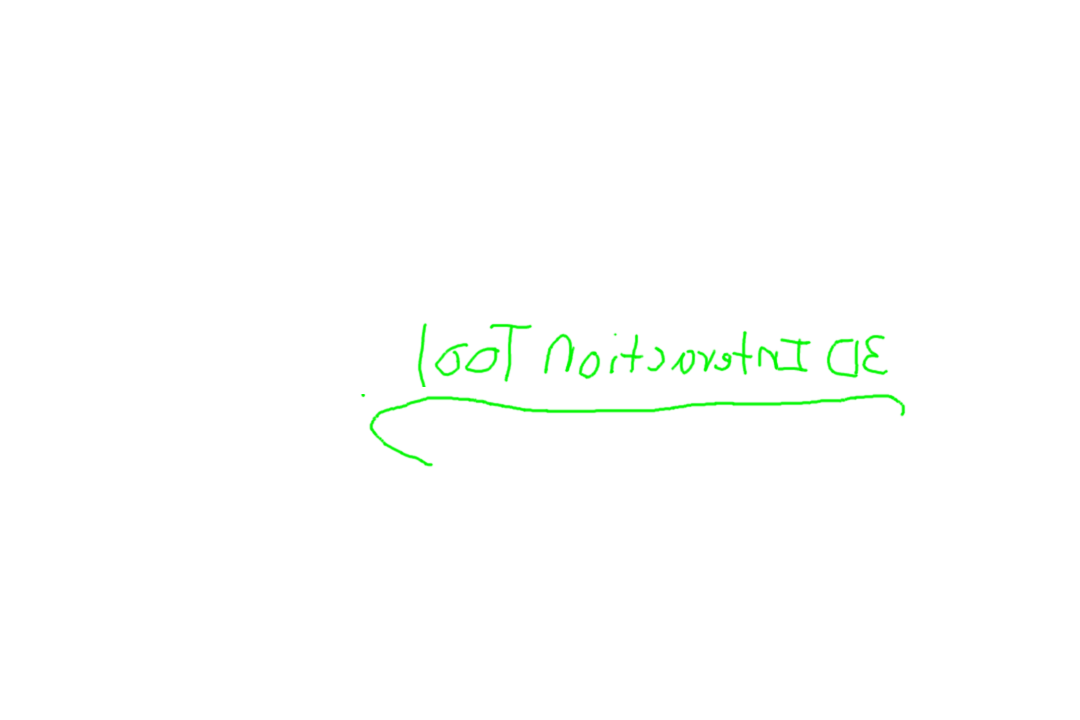 3D Interaction Tool